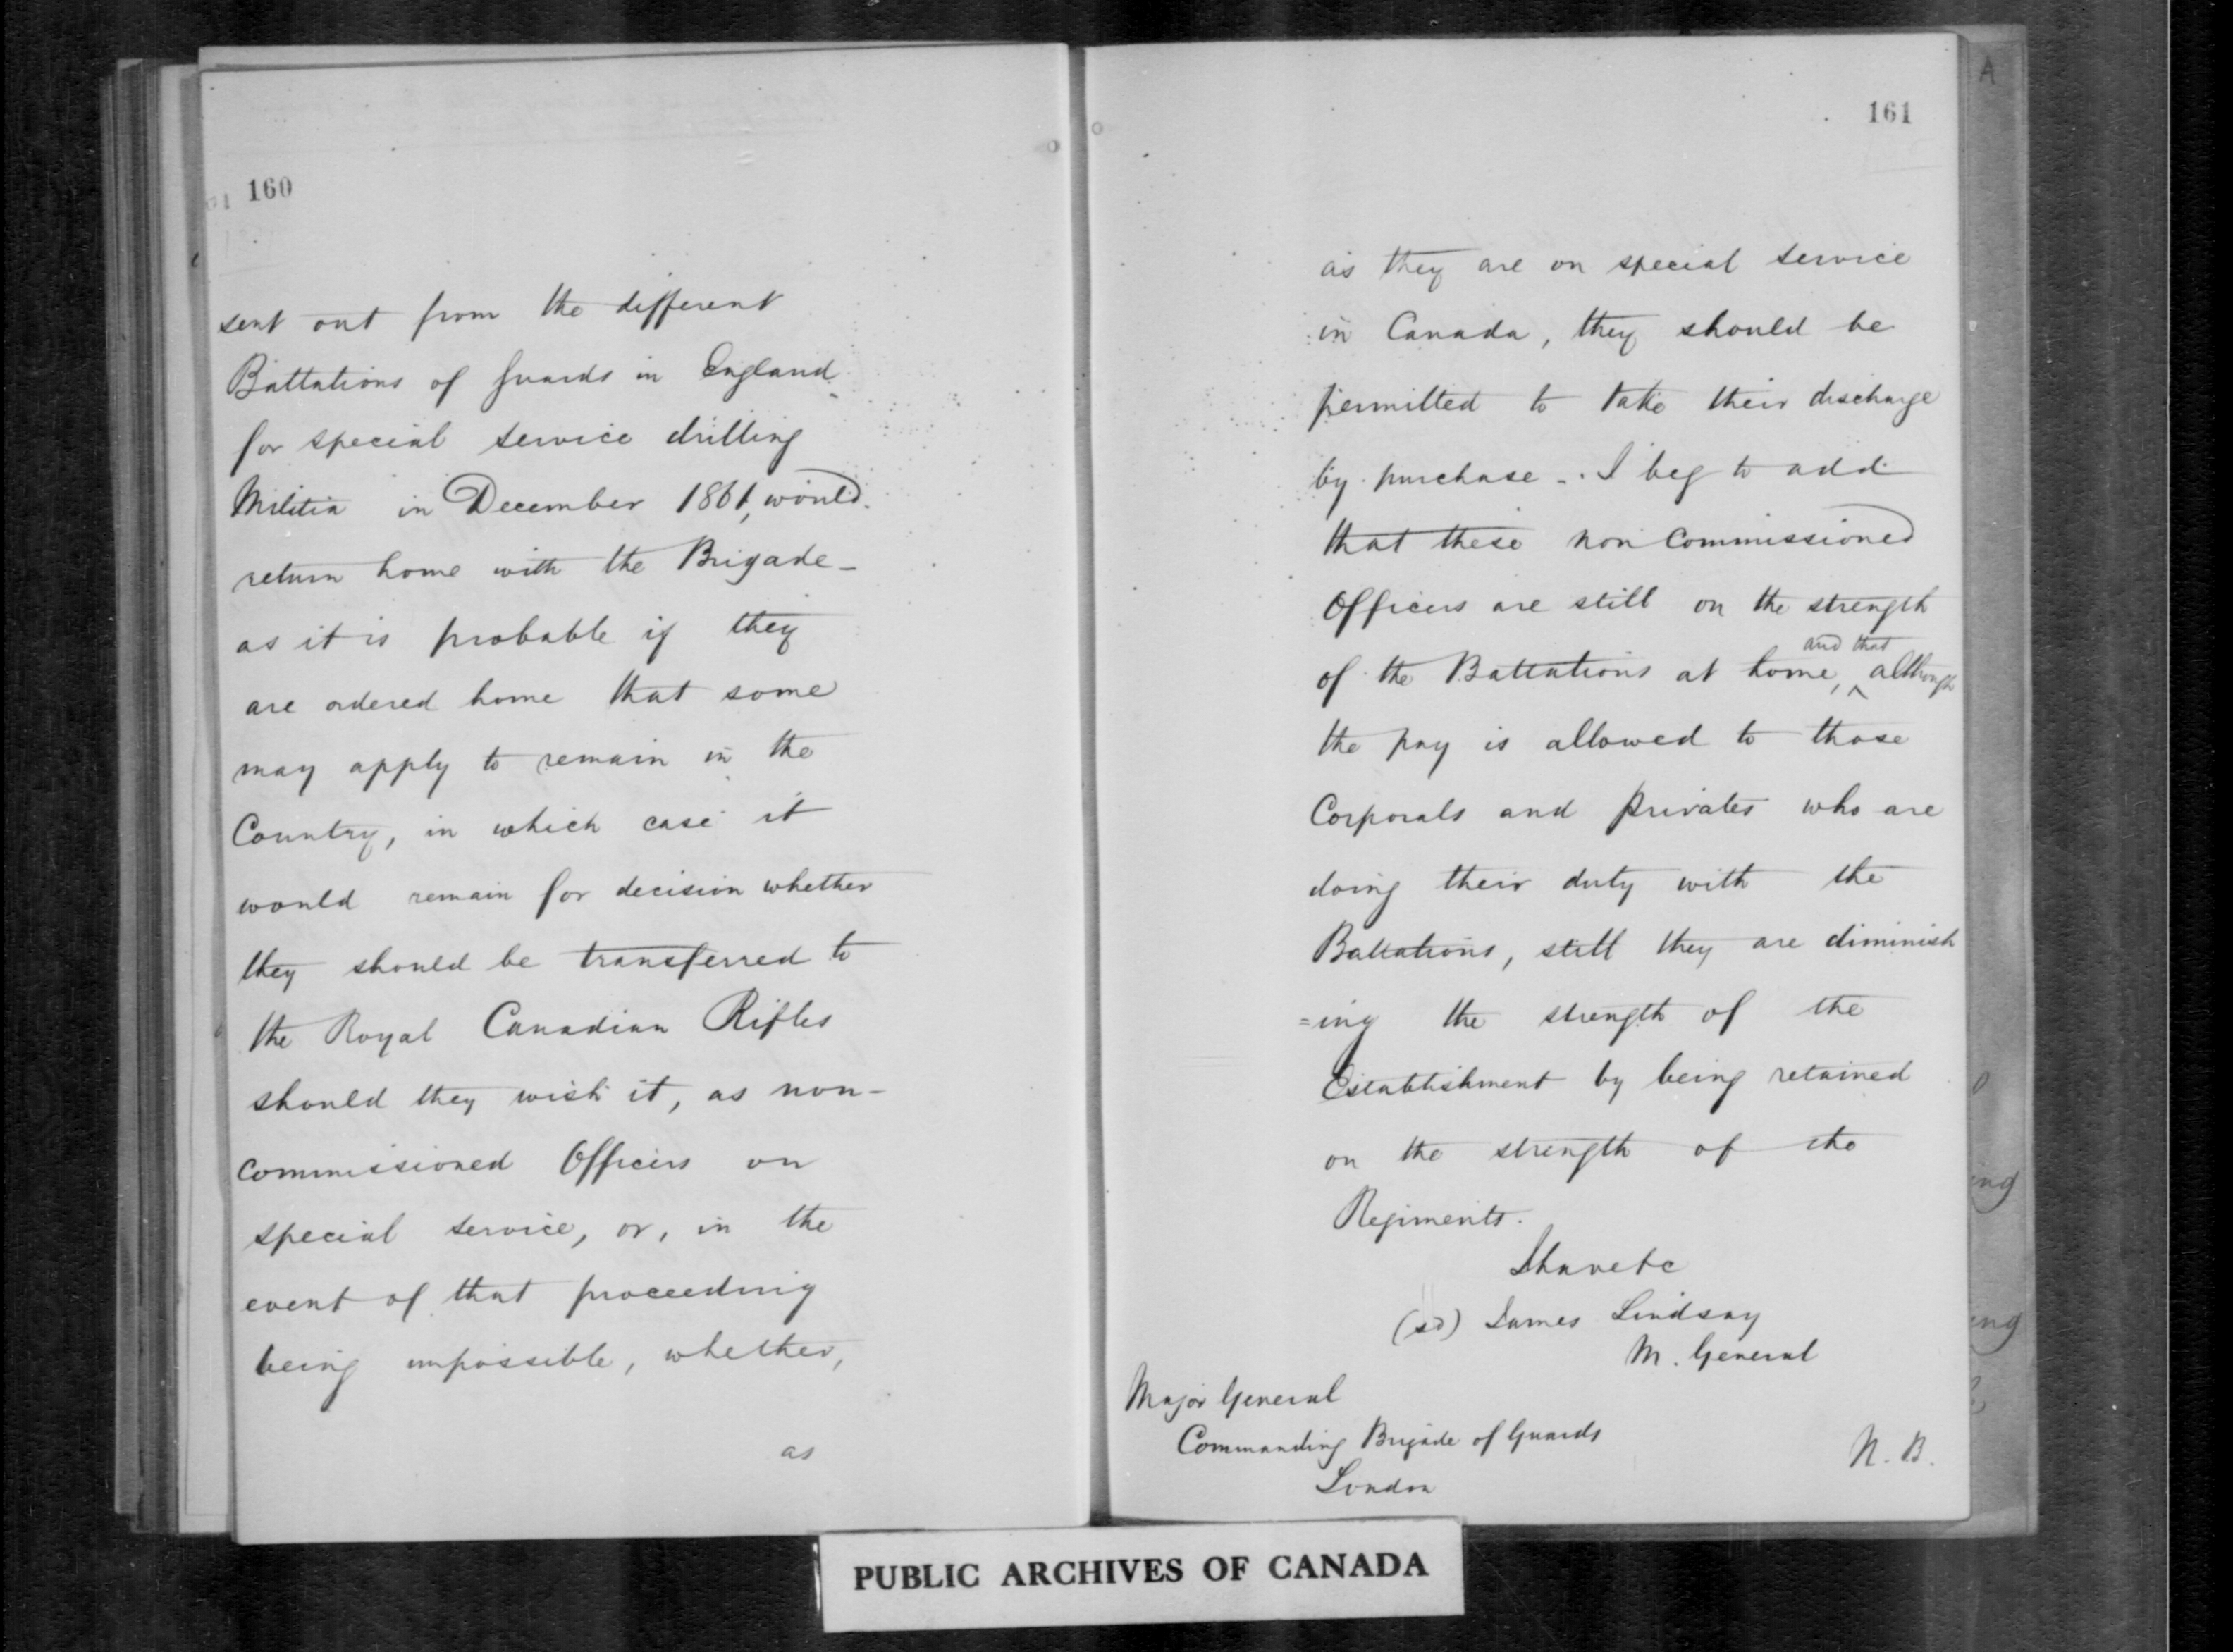 160
sent out from the different
Battalions of Guards in England
for special service drilling
Militia in December 1861, would
return home with the Brigade_
as it is probable if they
are ordered home that some
may apply to remain in the
Country, in which case it
would remain for decision whether
they should be transferred to
the Royal Canadian Rifles
should they wish it, as non-
commissioned Officers on
special service, or, in the
event of that proceeding
being impossible, whether,
as
161
as they are on special service
in Canada, they should be
permitted to take their discharge
by purchase_. I beg to add
that these non Commissioned
Officers are still on the strength
and that
of the Battalions at home, ^ although
the pay is allowed to those
Corporals and Privates who are
doing their duty with the
Battalions, still they are diminish
=ing the strength of the
Establishment by being retained
on the strength of the
Regiments.
I have &c
(sd) James Lindsay
M. General
Major General
Commanding Brigade of Guards
London
N.B.
PUBLIC ARCHIVES OF CANADA